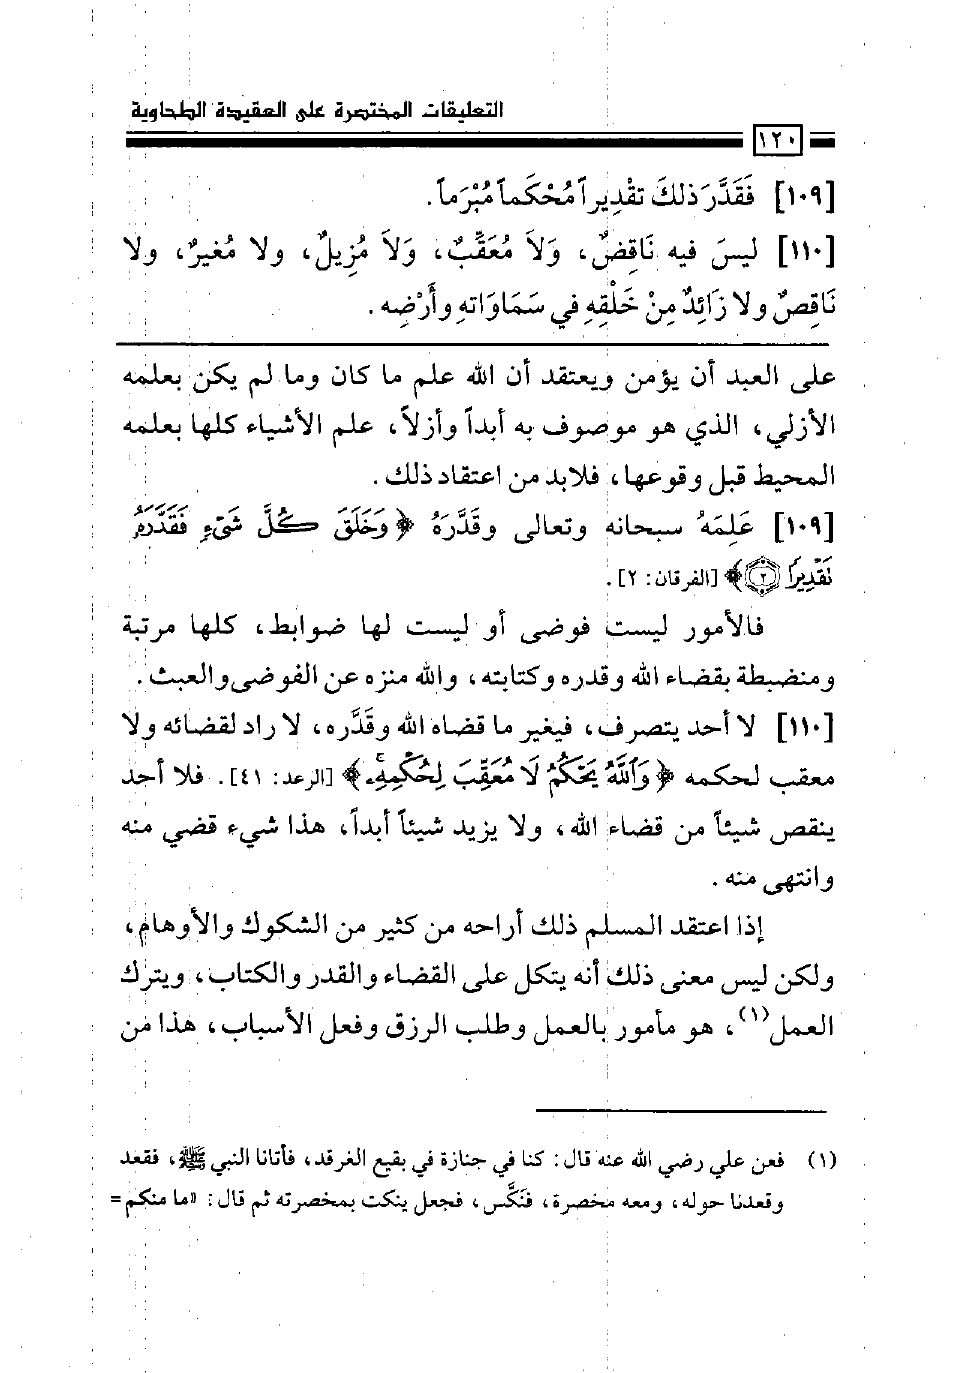 التعليقات المختصرة على العقيدة الطحاوية
١٢٠
[١٠٩] فَقَدَّرَ ذلكَ تقْدِيراً مُحْكَماً مُبْرَماً.
[١١٠] ليسَ فيه نَاقِضٌ، وَلاَ مُعَقِّبٌ، وَلاَ مُزِيلٌ، ولا مُغيرٌ، ولا
نَاقِصٌ ولا زَائِدٌ مِنْ خَلْقِهِ في سَمَاوَاتهِ وأَرْضِه.
على العبد أن يؤمن ويعتقد أن الله علم ما كان وما لم يكن بعلمه
الأزلي، الذي هو موصوف به أبداً وأزلاً، علم الأشياء كلها بعلمه
المحيط قبل وقوعها، فلابد من اعتقاد ذلك.
[١٠٩] عَلِمَهُ سبحانه وتعالى وقَدَّرَهُ ﴿وَخَلَقَ كُلَّ شَيْءٍ فَقَدَّرَهُ
نَقْدِيرًا ٢﴾ [الفرقان: ٢].
فالأمور ليست فوضى أو ليست لها ضوابط، كلها مرتبة
ومنضبطة بقضاء الله وقدره وكتابته، والله منزه عن الفوضى والعبث.
[١١٠] لا أحد يتصرف، فيغير ما قضاه الله وقَدَّره، لا راد لقضائه ولا
معقب لحكمه ﴿وَاللَّهُ يَحْكُمُ لَا مُعَقِّبَ لِحُكْمِهِ﴾ [الرعد: ٤١]. فلا أحد
ينقص شيئاً من قضاء الله، ولا يزيد شيئاً أبداً، هذا شيء قضي منه
وانتهى منه.
إذا اعتقد المسلم ذلك أراحه من كثير من الشكوك والأوهام،
ولكن ليس معنى ذلك أنه يتكل على القضاء والقدر والكتاب، ويترك
العمل(١)، هو مأمور بالعمل وطلب الرزق وفعل الأسباب، هذا من
(١) فعن علي رضي الله عنه قال: كنا في جنازة في بقيع الغرقد، فأتانا النبي ﷺ، فقعد
وقعدنا حوله، ومعه مخصرة، فنَكَّس، فجعل ينكت بمخصرته ثم قال: «ما منكم =